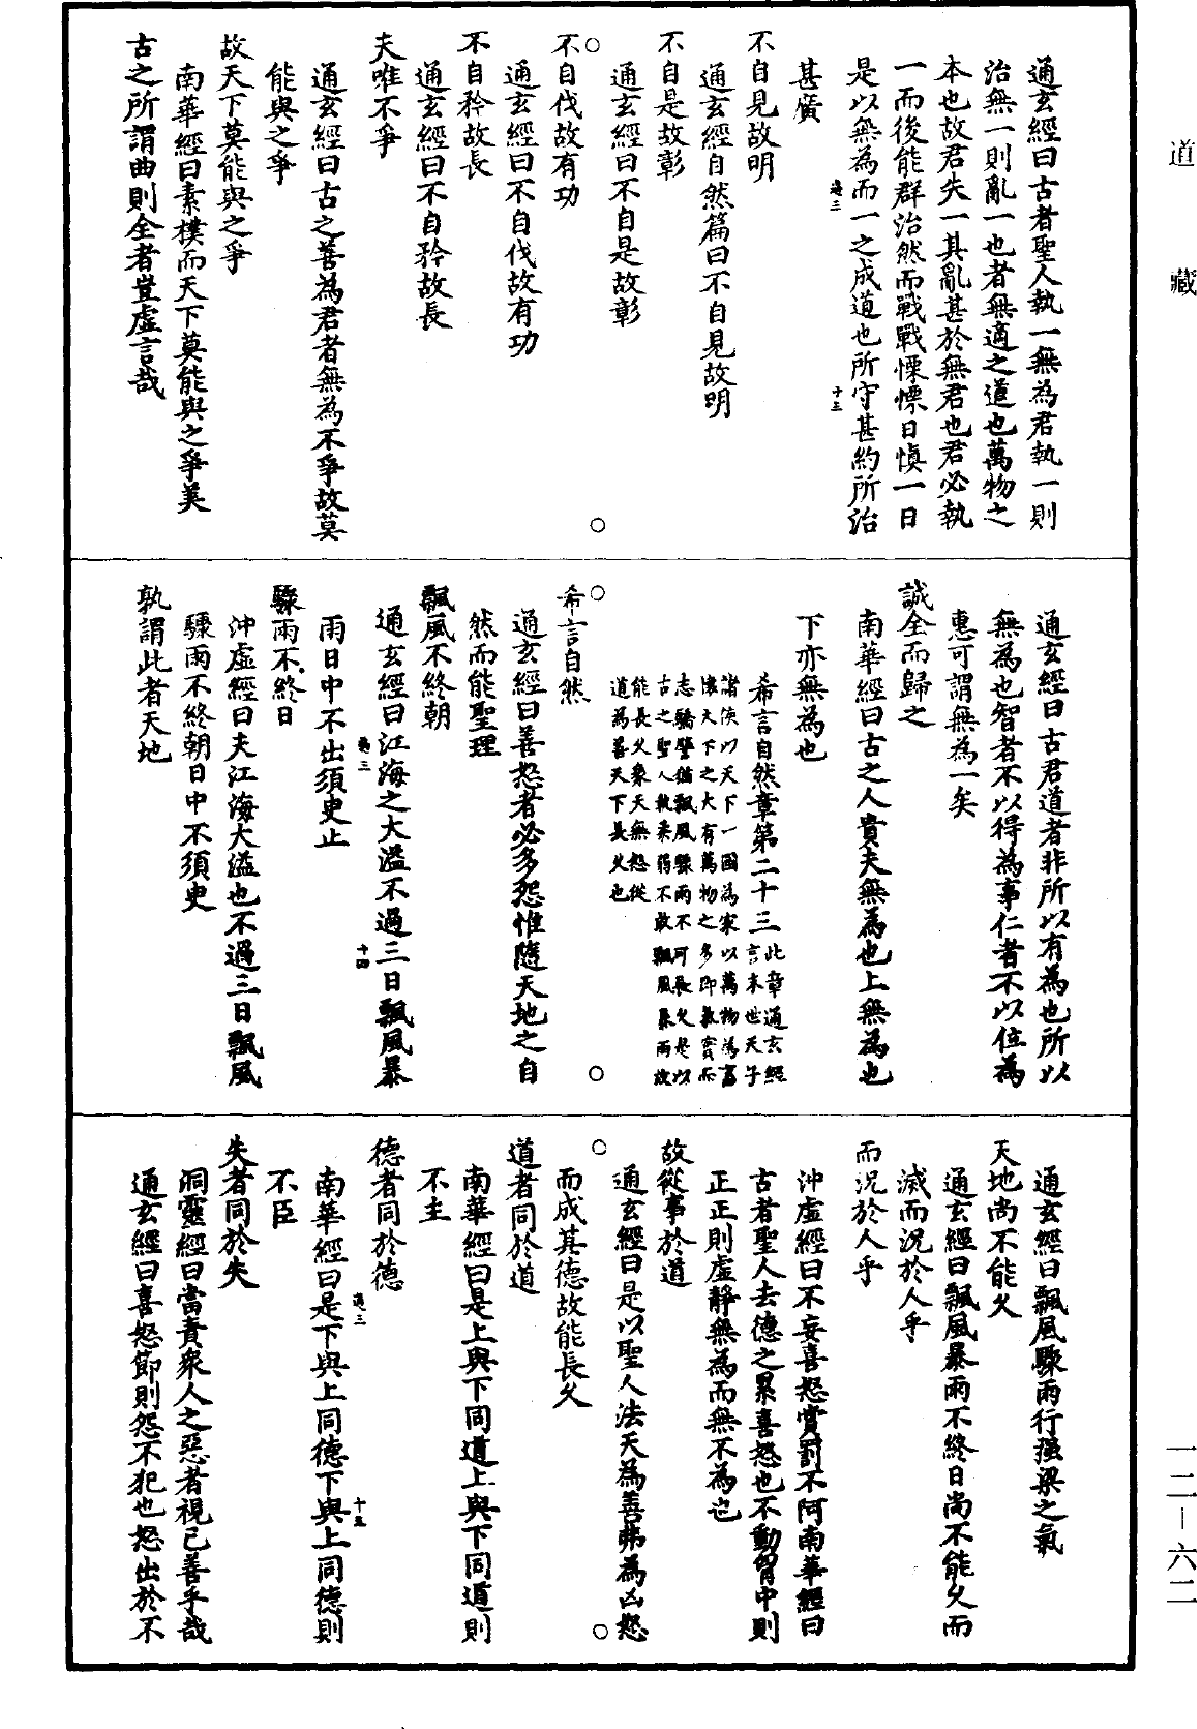 道藏
通玄經曰古者聖人執一無為君執一則
治無一則亂一也者無適之道也萬物之
本也故君失一其亂甚於無君也君必執
一而後能群治然而戰戰慄慄日慎一日
是以無為而一之成道也所守甚約所治
甚廣
不自見故明
通玄經自然篇曰不自見故明
不自是故彰
通玄經曰不自是故彰
不自伐故有功
通玄經曰不自伐故有功
不自矜故長
通玄經曰不自矜故長
夫唯不爭
通玄經曰古之善為君者無為不爭故莫
能與之爭
故天下莫能與之爭
南華經曰素樸而天下莫能與之爭美
古之所謂曲則全者豈虛言哉
通玄經曰古君道者非所以有為也所以
無為也智者不以得為事仁者不以位為
惠可謂無為一矣
誠全而歸之
南華經曰古之人貴夫無為也上無為也
下亦無為也
希言自然章第二十三
此章通玄經
言末世天子
諸侯以天下一國為家以萬物為畜
懷天下之大有萬物之多即氣實而
志驕譬猶飄風驟雨不可長久是以
古之聖人執柔弱不敢飄風暴雨故
能長久象天無怨從
道為善天下長久也
希言自然
通玄經曰善怒者必多怨惟隨天地之自
然而能聖理
飄風不終朝
通玄經曰江海之大溢不過三日飄風暴
雨日中不出須臾止
驟雨不終日
沖虛經曰夫江海大溢也不過三日飄風
驟雨不終朝日中不須臾
孰謂此者天地
通玄經曰飄風驟雨行強梁之氣
天地尚不能久
通玄經曰飄風暴雨不終日尚不能久而
滅而況於人乎
而況於人乎
沖虛經曰不妄喜怒賞罰不阿南華經曰
古者聖人去德之累喜怒也不動胷中則
正正則虛靜無為而無不為也
故從事於道
通玄經曰是以聖人法天為善弗為凶怒
而成其德故能長久
道者同於道
南華經曰是上與下同道上與下同道則
不主
德者同於德
南華經曰是下與上同德下與上同德則
不臣
失者同於失
洞靈經曰當責衆人之惡者視已善乎哉
通玄經曰喜怒節則怨不犯也怒出於不
十三
十四
十五
一二-六二